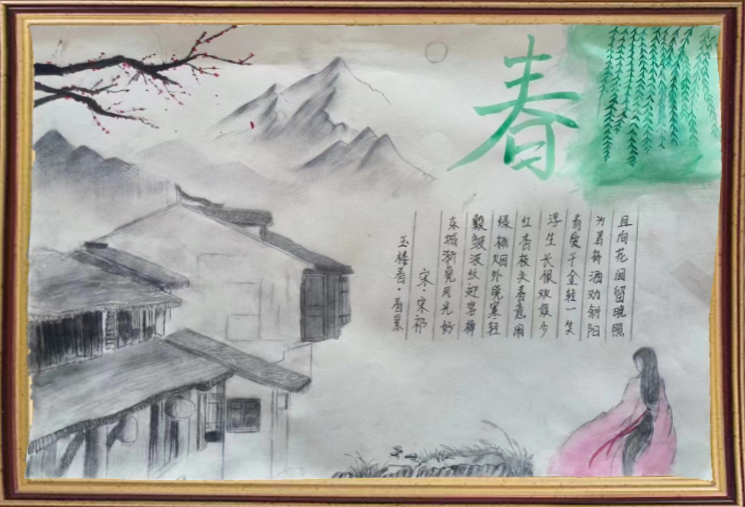 春
玉楼春·春景
宋·宋祁
东城渐觉风光好
縠皱波纹迎客棹
绿杨烟外晓寒轻
红杏枝头春意闹
浮生长恨欢娱少
肯爱千金轻一笑
为君持酒劝斜阳
且向花间留晚照